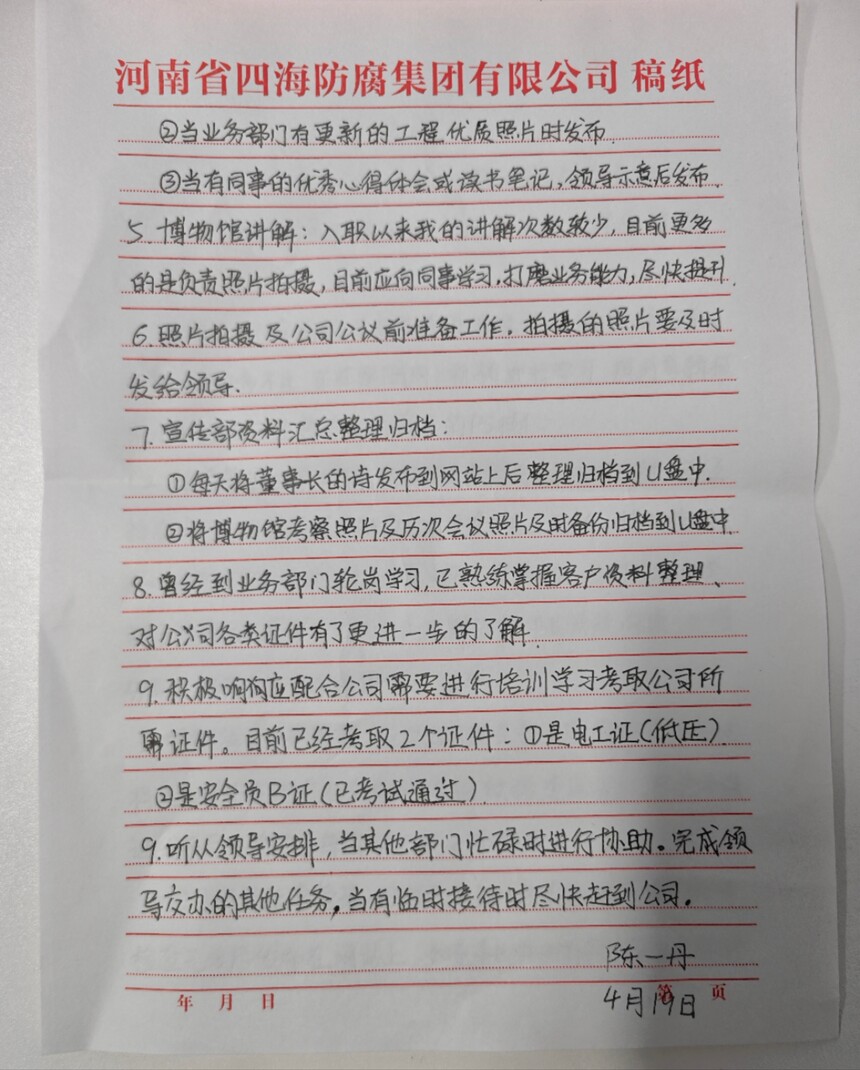 河南省四海防腐集团有限公司 稿纸
②当业务部门有更新的工程优质照片时发布.
③当有同事的优秀心得体会或读书笔记,领导示意后发布.
5. 博物馆讲解:入职以来我的讲解次数较少,目前更多
的是负责照片拍摄,目前应向同事学习,打磨业务能力,尽快提升.
6.照片拍摄及公司会议前准备工作,拍摄的照片要及时
发给领导.
7. 宣传部资料汇总整理归档:
①每天将董事长的诗发布到网站上后整理归档到U盘中.
②将博物馆考察照片及历次会议照片及时备份归档到U盘中.
8.曾经到业务部门轮岗学习,已熟练掌握客户资料整理、
对公司各类证件有了更进一步的了解.
9.积极响应配合公司需要进行培训学习考取公司所
需证件。目前已经考取2个证件:①是电工证(低压)
②是安全员B证(已考试通过)
9.听从领导安排,当其他部门忙碌时进行协助。完成领
导交办的其他任务。当有临时接待时尽快赶到公司。
陈一丹
4月19日
年 月 日 第 页